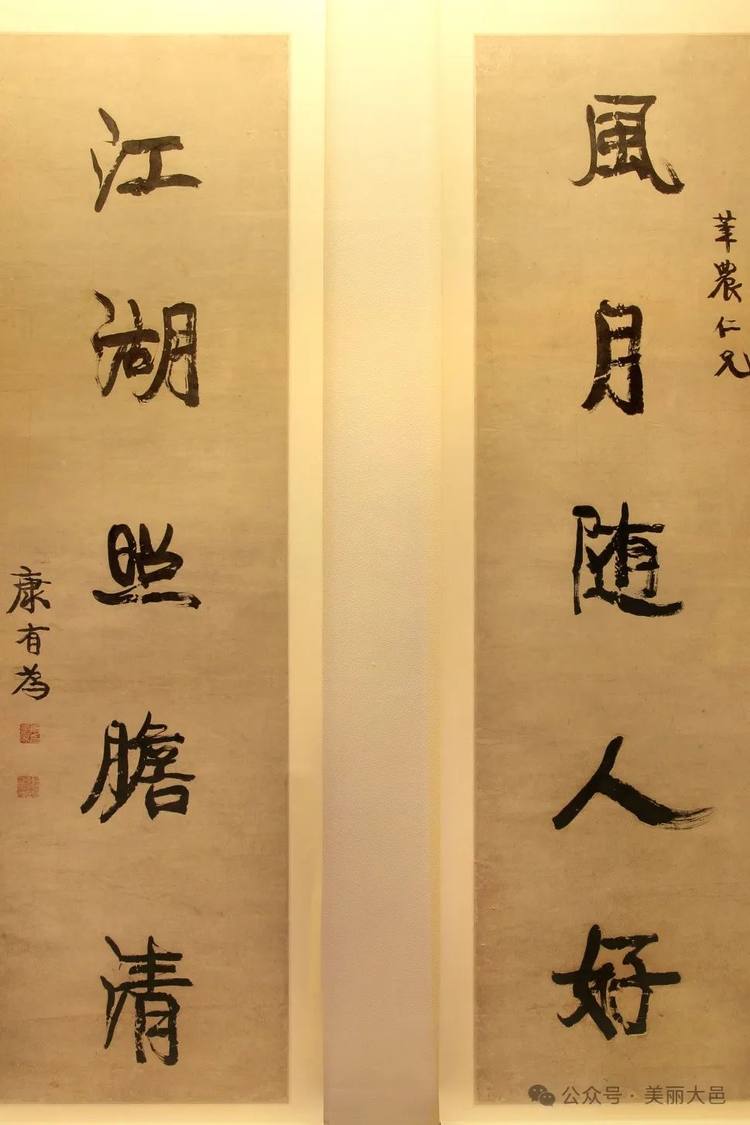 風月随人好
農仁兄
江湖照膽清
康有為
公众号·美丽大邑